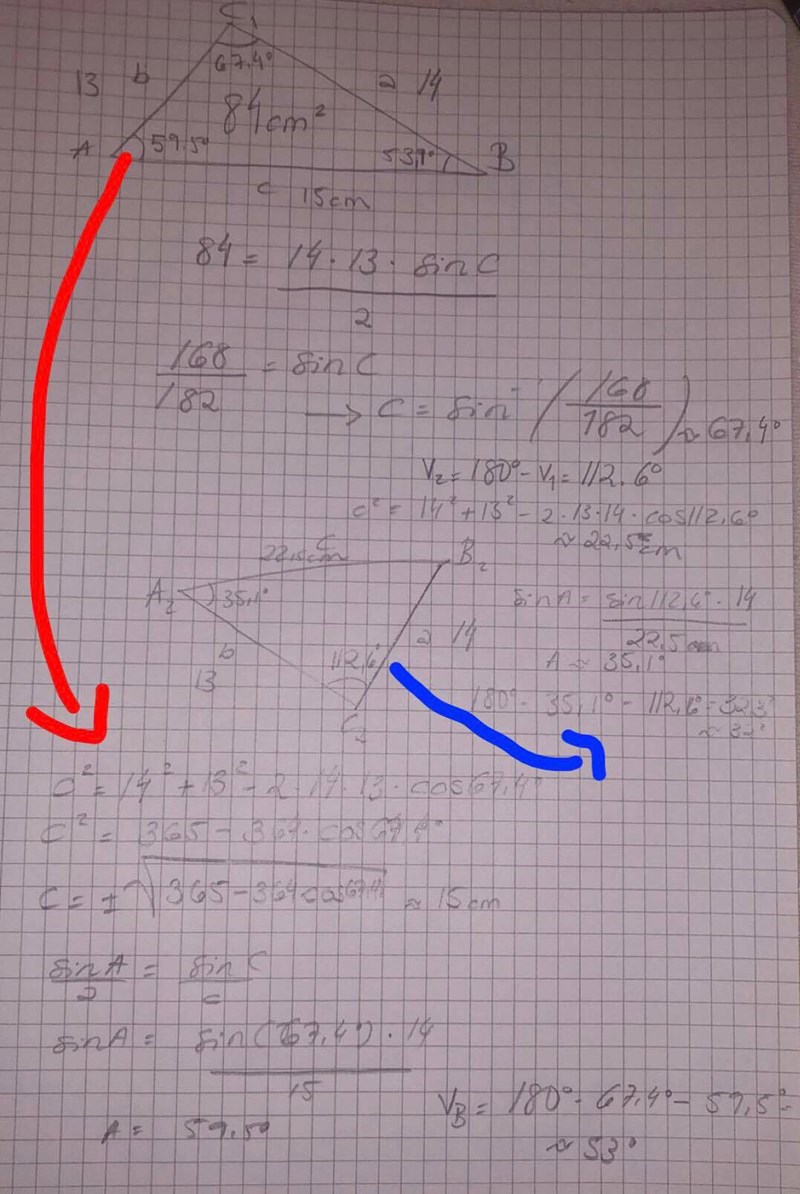 C₁
67.4°
13 b
a 14
84cm²
A 59.5°
53,1° B
c 15cm
84 = 14·13·sinC / 2
168/182 = sinC
→ C = sin⁻ (168/182) ≈ 67,4°
V₂ = 180° - V₁ = 112.6°
c² = 14² + 13² - 2·13·14·cos112,6°
≈ 22,5cm
c
B₂
A₂ 35,1°
sinA = sin112,6°·14 / 22,5cm
a 14
b
13
112,6°
A ≈ 35,1°
C₂
180° - 35,1° - 112,6° = 32,3°
≈ 32°
c² = 14² + 13² - 2·14·13·cos67,4°
c² = 365 - 364·cos67,4°
c = ± √365-364cos67,4 ≈ 15cm
sinA/a = sinC/c
sinA = sin(67,4°)·14 / 15
A = 59.5°
V_B = 180° - 67,4° - 59,5° =
≈ 53°